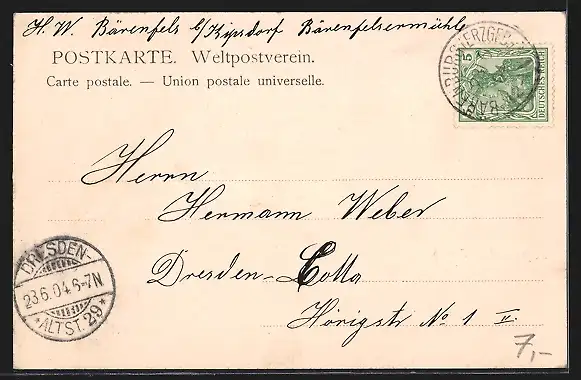 H. W. Bärenfels b/Kipsdorf Bärenfelsermühle
POSTKARTE. Weltpostverein.
Carte postale. — Union postale universelle.
5
DEUTSCHES REICH
BÄRENBURG (ERZGEB.)
Herrn
Hermann Weber
Dresden-Cotta
Hörigstr No 1 II.
DRESDEN-
23.6.04.6-7N
* ALTST. 29 *
7,-